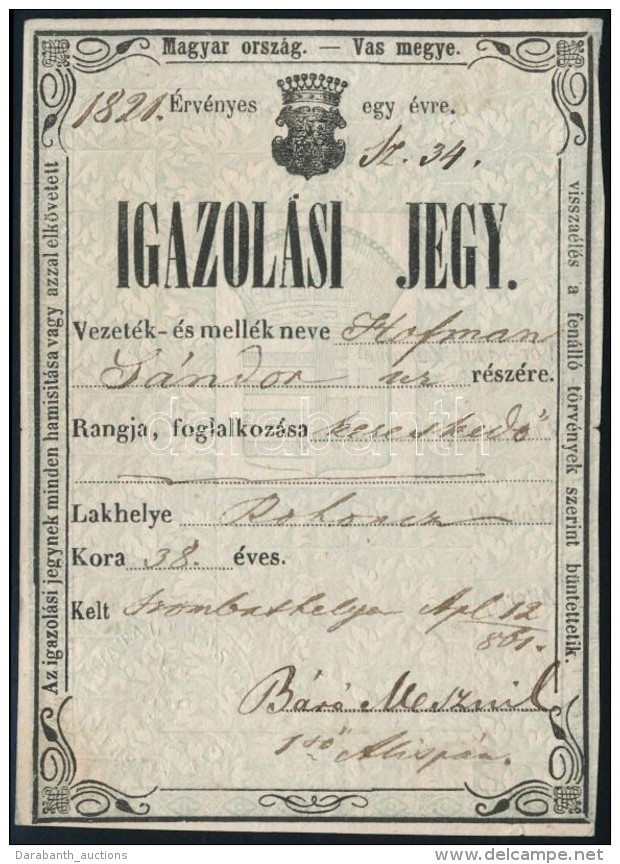 Magyar ország. — Vas megye.
1821. Érvényes egy évre.
Sz. 34.
IGAZOLÁSI JEGY.
Vezeték- és mellék neve Hofman
Sándor ur részére.
Rangja, foglalkozása kereskedő
Lakhelye Rohoncz
Kora 38. éves.
Kelt Szombathelyen Apl. 12
861.
Báró Mesznil
1ső Alispán.
Az igazolási jegynek minden hamisitása vagy azzal elkövetett
visszaélés a fenálló törvények szerint büntettetik.
darabanth
Darabanth_auctions
delcampe.net